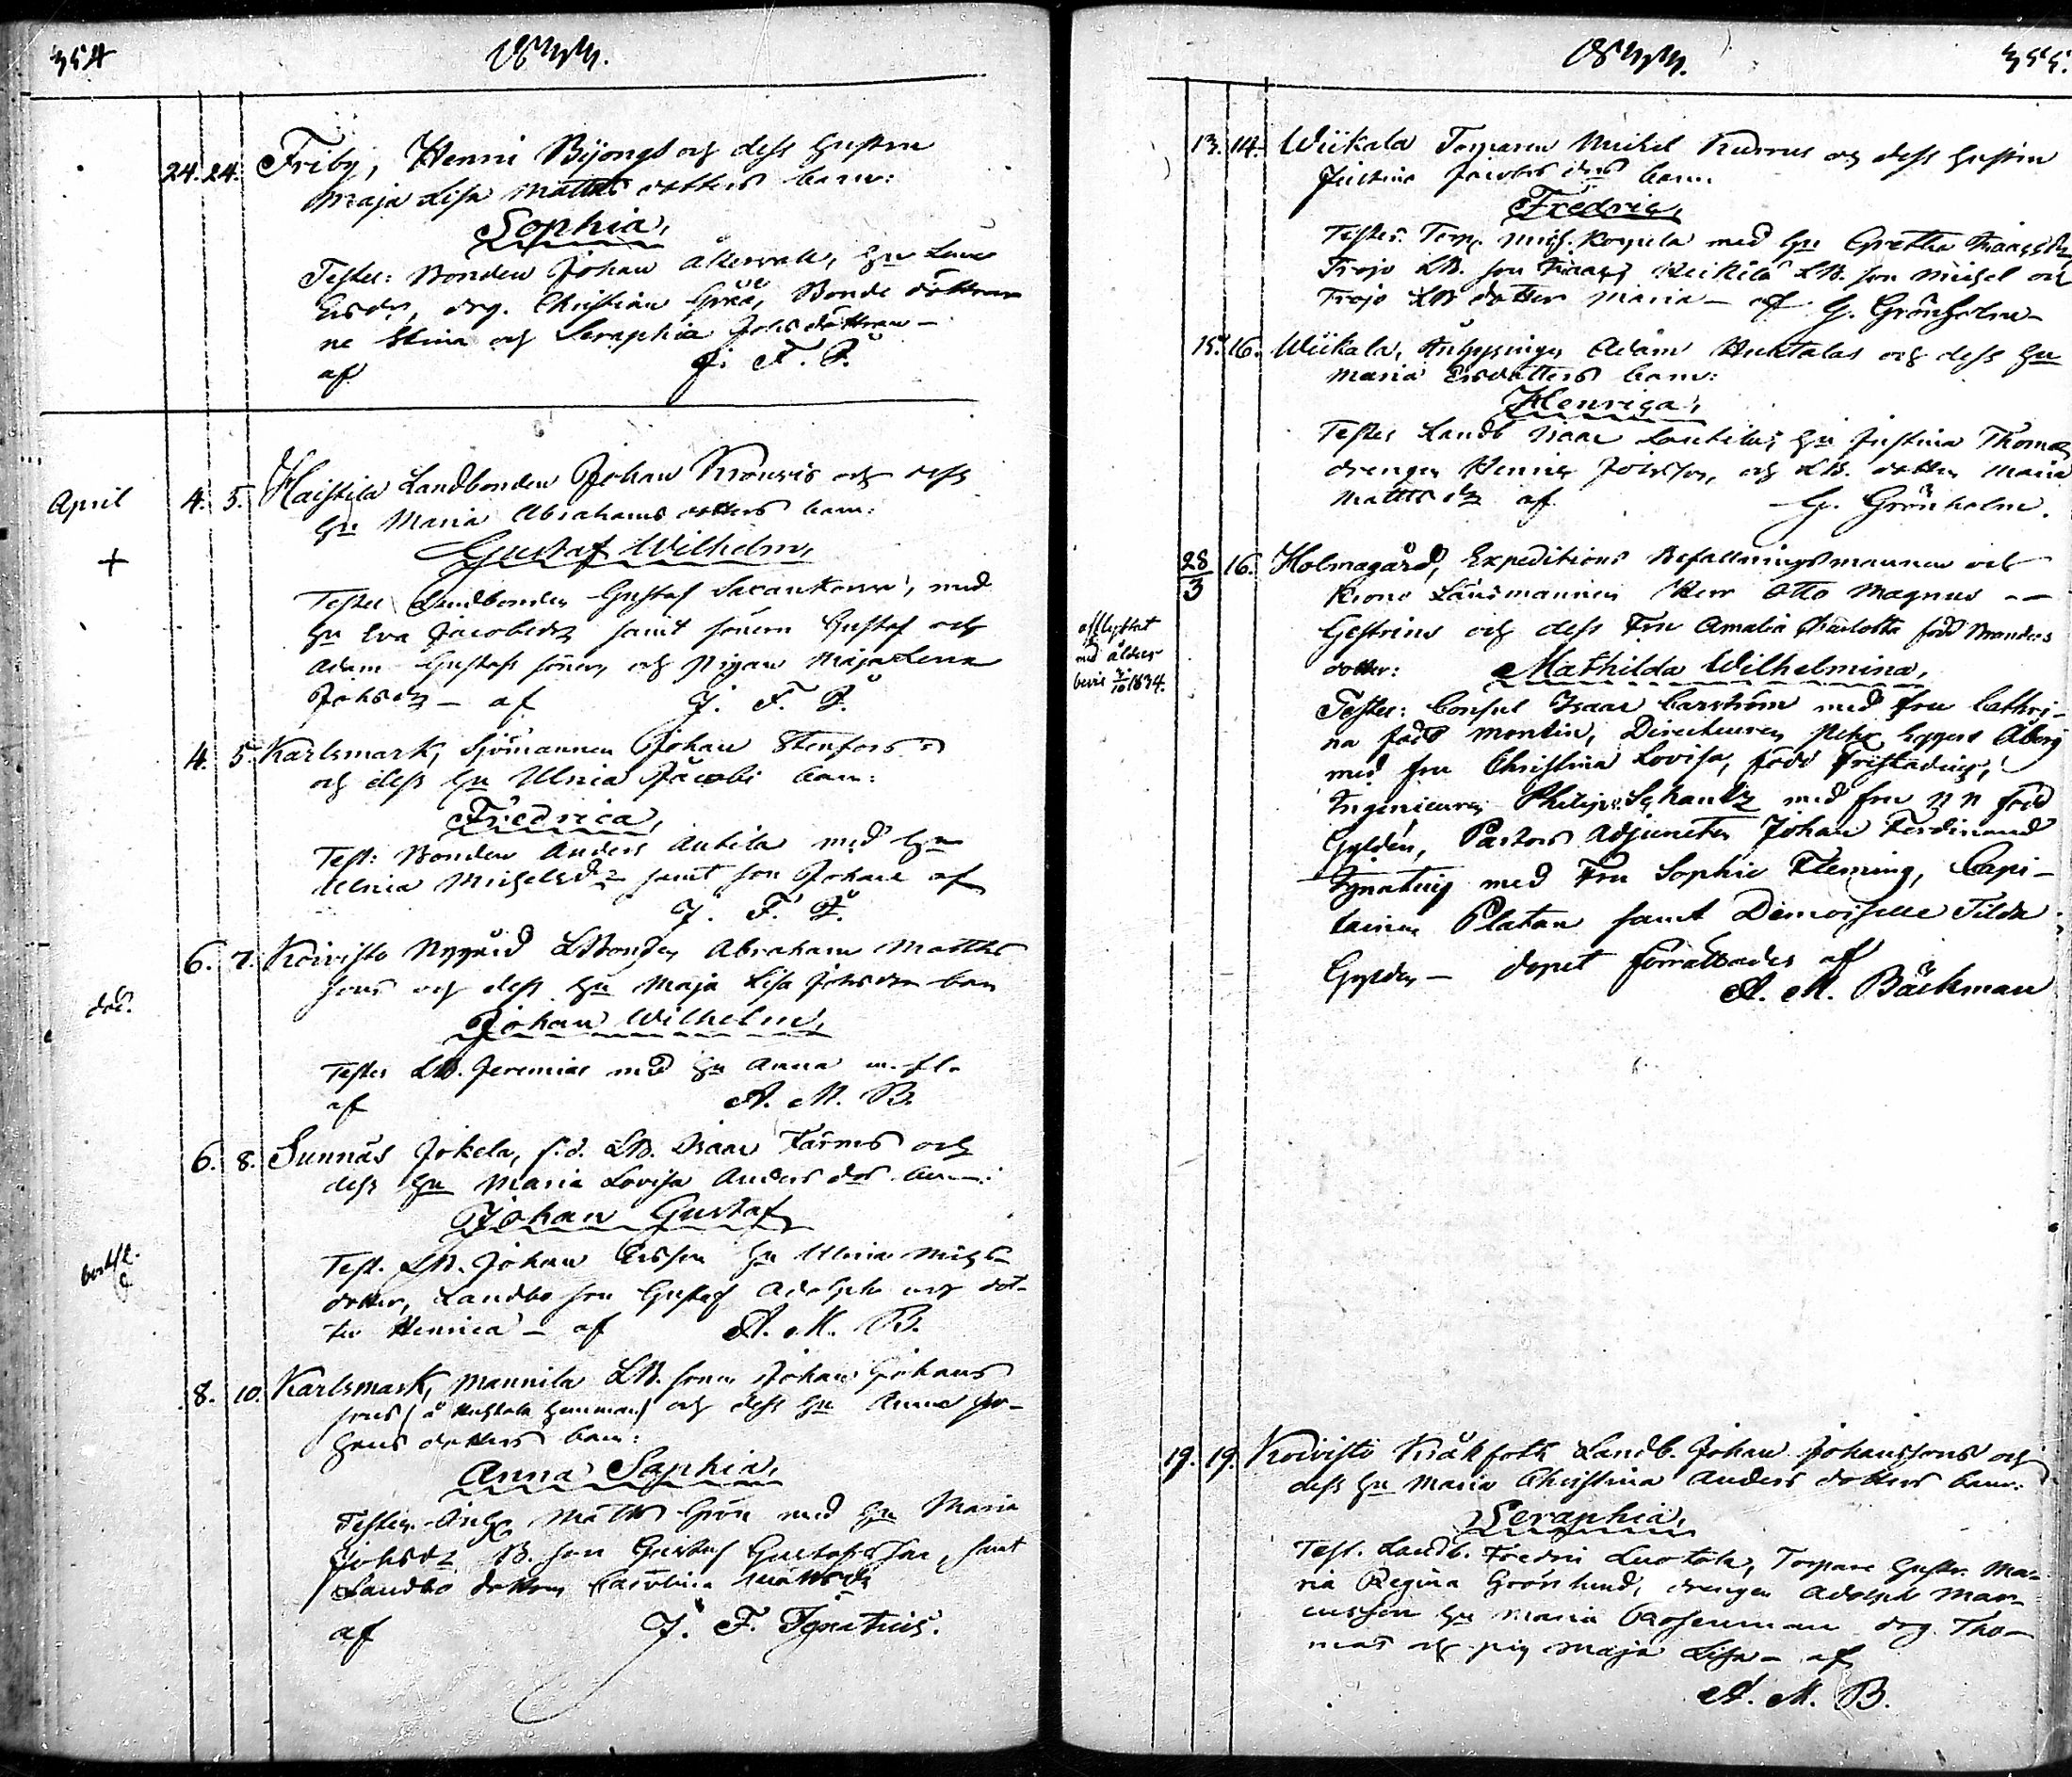 354
1833.
24. 24. Friby, Henric Bijongs och dess hustru
Maja Lisa Matts dotters barn:
Sophia,
Testes: Bonden Johan Åkervall, hu Lena
Ersdr, drg. Christian Grää, Bonde döttrar
ne Stina och Seraphia Johsdöttrar —
af J. F. I.
April 4. 5. Haistila Landbonden Johan Krouvis och dess
hu Maria Abrahams dotters barn:
+
Gustaf Wilhelm,
Testes Landbonden Gustaf, med
hu Eva Jacobsdr samt sönern Gustaf och
Adam Gustafs söner, och Pigan Maja Lena
Johsdr — af J. F. I.
4. 5. Karlsmark, Sjömannen Johan Stenfors
och dess hu Ulrica Jacobs barn:
Fredrica,
Test: Bonden Anders Antila med hu
Ulrica Michelsdr samt son Johan af
J. F. I.
6. 7. Koivisto Nygård LBonden Abraham Matts
sons och dess hu Maja Lisa Johsdrs barn
död.
Johan Wilhelm,
Testes LB. Jeremias med hu Anna m. fl.
af A. M. B.
6. 8. Sunnäs Jokela, f.d. LB. Isaac Färms och
dess hu Maria Lovisa Anders drs barn:
Johan Gustaf
Test. LB. Johan Ersson hu Ulrica Mich:
dotter, Landbo son Gustaf Adolph och dot-
ter Henrica — af A. M. B.
8. 10. Karlsmark, Mannila LB. sonen Johan Johans
sons (å hemman) och dess hu Anna Jo-
hans dotters barn:
Anna Sophia,
Testes. Matts Grön med hu Maria
Johsdr B. son Gustaf Gustafsson, samt
Landbo dottren Carolina Mattsdr
af J. F. Ignatius.
1833.
355.
13. 14. Wiikala Torparen Michel Kurrus och dess hustru
Justina Jacobs drs barn
Fredric,
Testes: Torp. Mich. Koyula med hu Gretha
Trojo LB. son LB. son Michel och
Trojo LB dotter Maria — af G. Grönholm —
15. 16. Wiikala, Inhysingen Adam Huktalas och dess hu
Maria Ersdotters barn:
Henrica,
Testes Landb Isaac, hu Justina Thomas
drengen Henric Johsson, och LB. dotter Maria
Matts dr af G. Grönholm.
28/3 16. Holmagård, Expeditions Befallningsmannen och
Krono Länsmannen Herr Otto Magnus —
afflyttat
med ålders
bevis 1834.
Gestrins och dess Fru Amalia Charlotta född Branders
dotter: Mathilda Wilhelmina,
Testes: Consul Isaac Carström med fru Cathri-
na född Montin, Directeuren Åberg
med fru Christina Lovisa, född Fristadius,
Ingenieuren Philip Schantz med fru N N född
Gyldén, Pastors Adjuncten Johan Ferdinand
Ignatius med Fru Sophie Fleming, Capi-
tainen Platan samt Demoiselle Tilda
Gyldén — dopet förrättades af
A. M. Bäckman
19. 19. Koivisto Kråkfoth Landb. Johan Johanssons och
dess hu Maria Christina Anders dotters barn:
Seraphia,
Test. Landb. Fredric Luotola, Torpare hustr. Ma-
ria Regina Grönlund, drengen Adolph Mar-
cusson hu Maria drg. Tho-
mas och pig Maja Lisa — af
A. M. B.